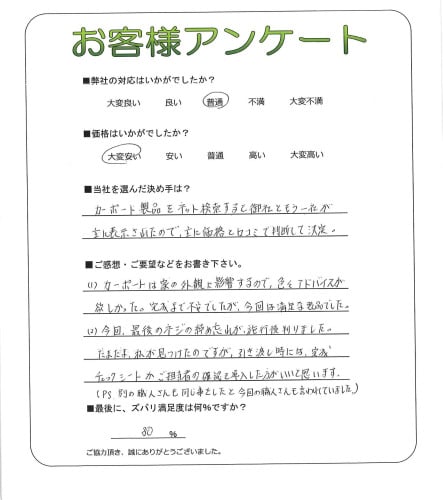 お客様アンケート
■弊社の対応はいかがでしたか?
大変良い 良い 普通 不満 大変不満
■価格はいかがでしたか?
大変安い 安い 普通 高い 大変高い
■当社を選んだ決め手は?
カーポート製品をネット検索すると御社ともう一社が
主に表示されたので、主に価格と口コミで判断して決定。
■ご感想・ご要望などをお書き下さい。
(1) カーポートは家の外観に影響するので、色々アドバイスが
欲しかった。完成まで不安でしたが、今回は満足な製品でした。
(2) 今回、最後のネジの締め忘れが、後判りました。
たまたま、私が見つけたのですが、引き渡し時には、完成
チェックシートかご担当者の確認を導入した方がいいと思います。
(PS 別の職人さんも同じ事をしたと今回の職人さんも言われていました。)
■最後に、ズバリ満足度は何%ですか?
80 %
ご協力頂き、誠にありがとうございました。